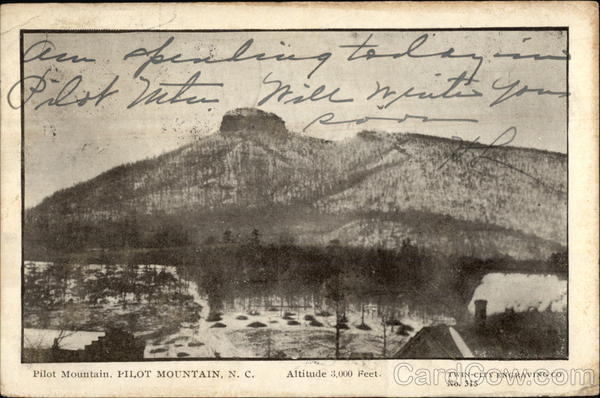 Am spending today in
Pilot Mtn Will write you
soon
Pilot Mountain. PILOT MOUNTAIN, N. C. Altitude 3,000 Feet. TWIN-CITY ENGRAVING CO
No. 315
CardCow.com